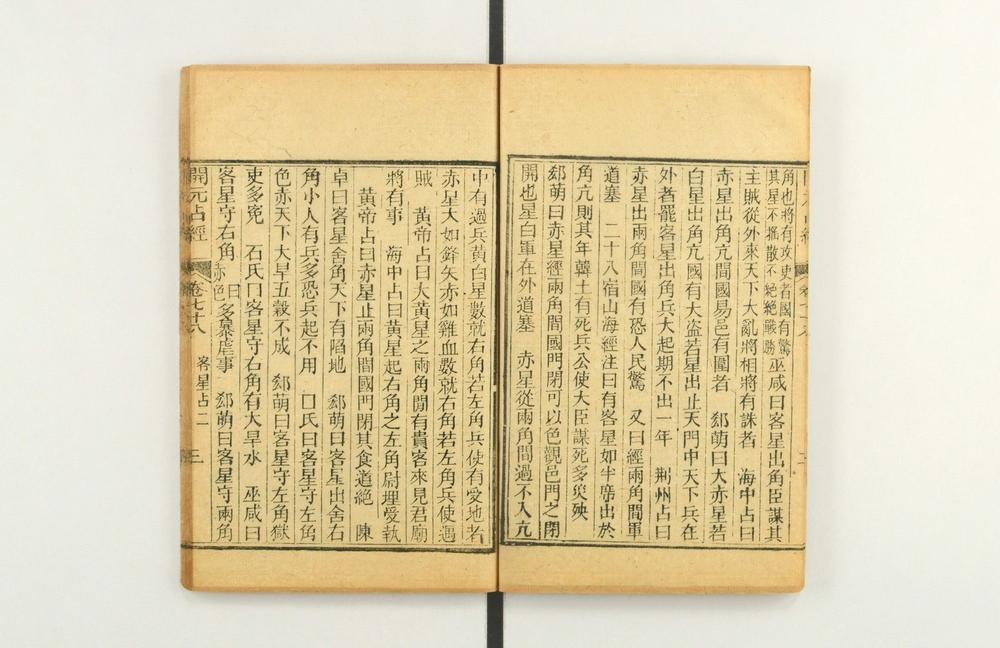 角也將有攻吏者國有驚
其星不搖散不絶絶戰勝巫咸曰客星出角臣謀其
主賊從外來天下大亂將相將有誅者 海中占曰
赤星出角亢間國易邑有圍者 郄萌曰大赤星若
白星出角亢國有大盗若星出止天門中天下兵在
外者罷客星出角兵大起期不出一年 荆州占曰
赤星出兩角間國有恐人民驚 又曰經兩角間軍
道塞 二十八宿山海經注曰有客星如半席出於
角亢則其年韓土有死兵公使大臣謀死多災殃
郄萌曰赤星經兩角間國門閉可以色觀邑門之閉
開也星白軍在外道塞 赤星從兩角間過不入亢
中有過兵黄白星數就右角若左角兵使有愛地者
赤星大如鋒矢赤如雞血數就右角若左角兵使遇
賊 黄帝占曰大黄星之兩角間有貴客來見君廟
將有事 海中占曰黄星起右角之左角尉理受執
黄帝占曰赤星止兩角間國門閉其食道絶 陳
卓曰客星舍角天下有陷地 郄萌曰客星出舍右
角小人有兵多恐兵起不用 口氏曰客星守左角
色赤天下大旱五穀不成 郄萌曰客星守左角獄
吏多寃 石氏曰客星守右角有大旱水 巫咸曰
客星守右角赤色曰多暴虐事 郄萌曰客星守兩角
開元占經 卷七十八 客星占二 三